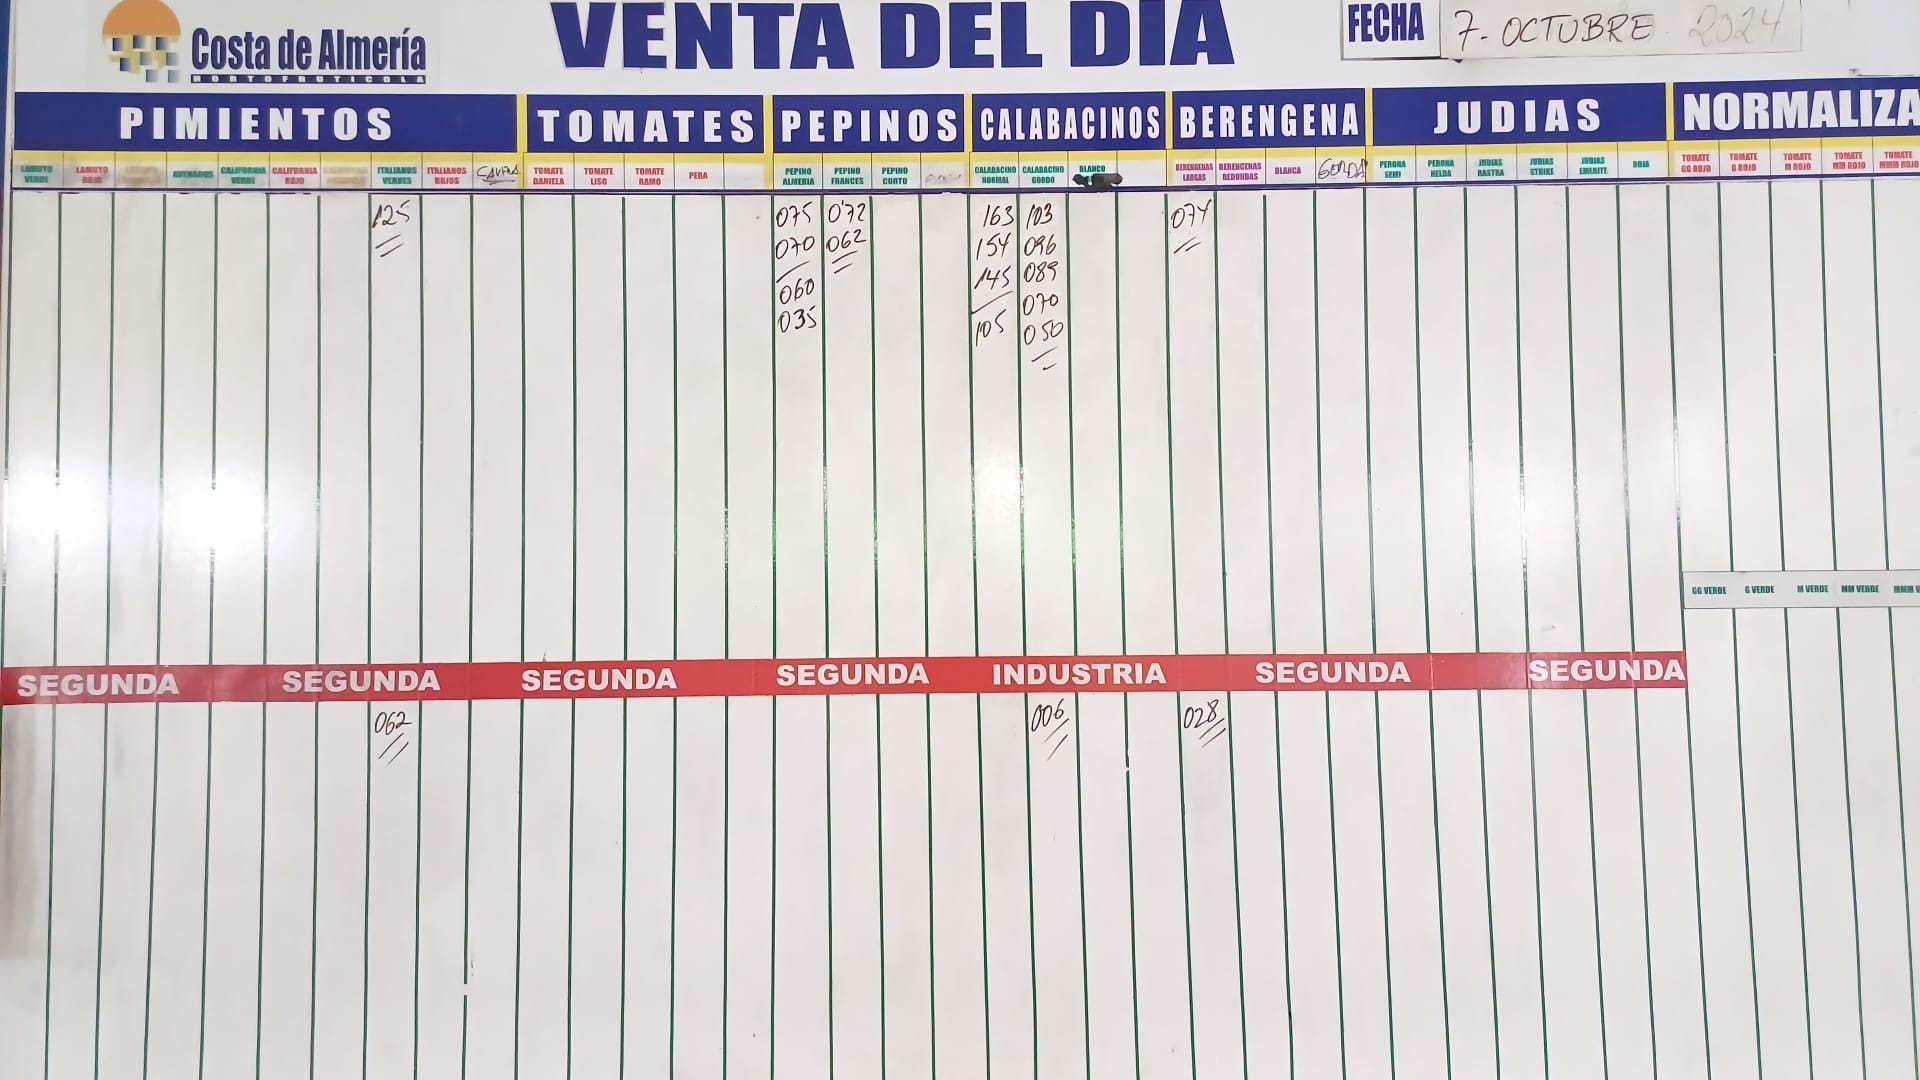 Costa de Almería
HORTOFRUTICOLA
VENTA DEL DIA
FECHA
7- OCTUBRE 2024
PIMIENTOS TOMATES PEPINOS CALABACINOS BERENGENA JUDIAS NORMALIZA
LAMUYO VERDE
LAMUYO ROJO
CALIFORNIA VERDE
CALIFORNIA ROJO
ITALIANOS VERDES
ITALIANOS ROJOS
TOMATE DANIELA
TOMATE LISO
TOMATE RAMO
PERA
PEPINO ALMERIA
PEPINO FRANCES
PEPINO CORTO
CALABACINO NORMAL
CALABACINO GORDO
BLANCO
BERENGENAS LARGAS
BERENGENAS REDONDAS
BLANCA
GORDA
PERONA SEMI
PERONA HELDA
JUDIAS RASTRA
JUDIAS STRIKE
JUDIAS EMERITE
ROJA
TOMATE GG ROJO
TOMATE G ROJO
TOMATE M ROJO
TOMATE MM ROJO
TOMATE MMM ROJO
125 075 0'72 163 103 074
070 062 154 096
060 145 089
035 105 070
050
GG VERDE G VERDE M VERDE MM VERDE MMM V
SEGUNDA SEGUNDA SEGUNDA SEGUNDA INDUSTRIA SEGUNDA SEGUNDA
062 006 028